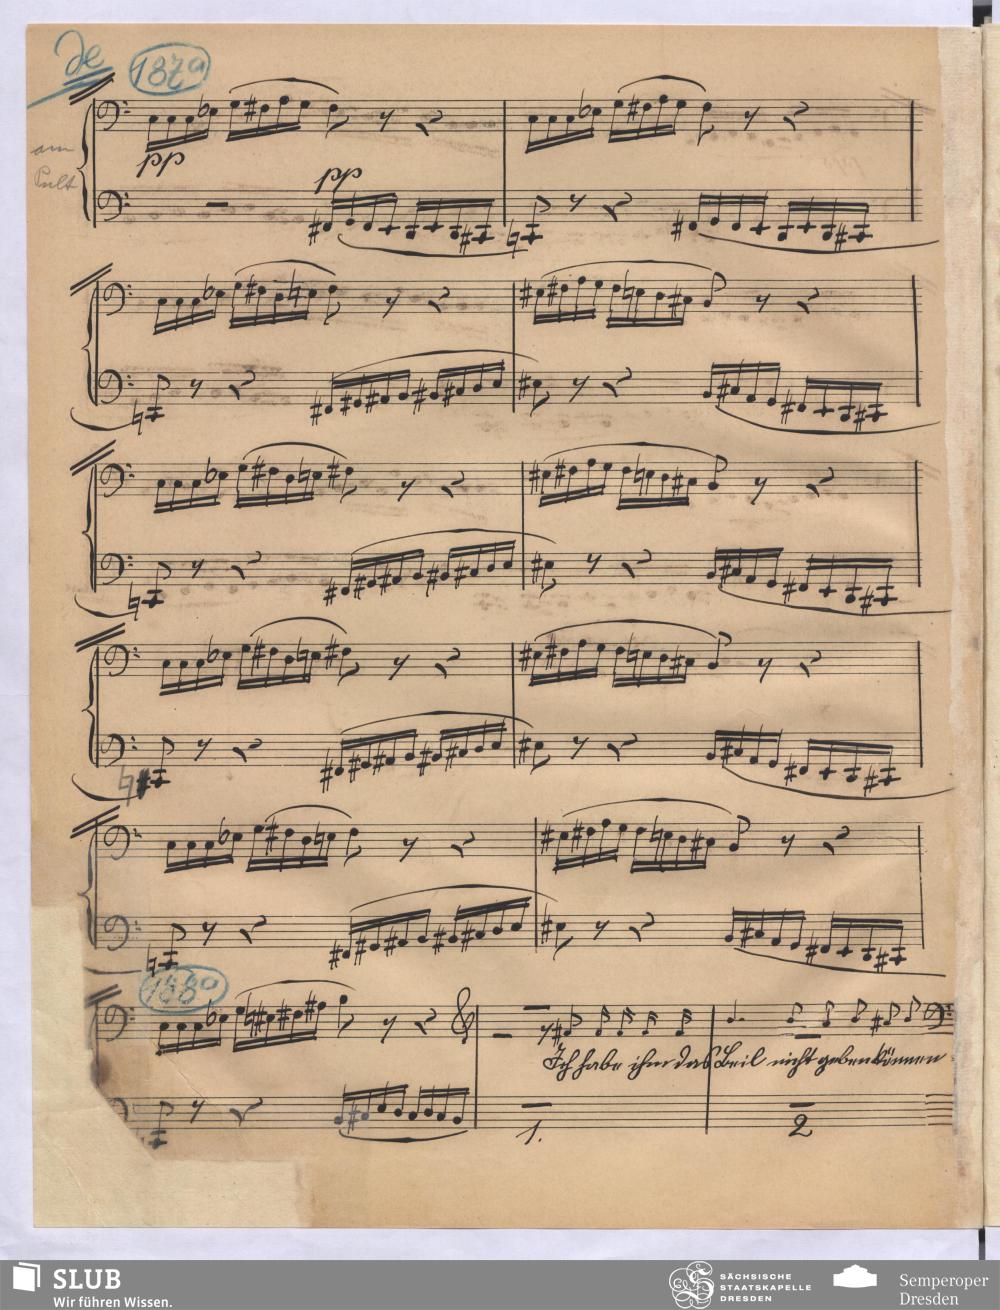 187a
am
Pult
pp
pp
188a
Ich habe ihm das Beil nicht geben können
1.
2
SLUB
Wir führen Wissen.
SÄCHSISCHE
STAATSKAPELLE
DRESDEN
Semperoper
Dresden